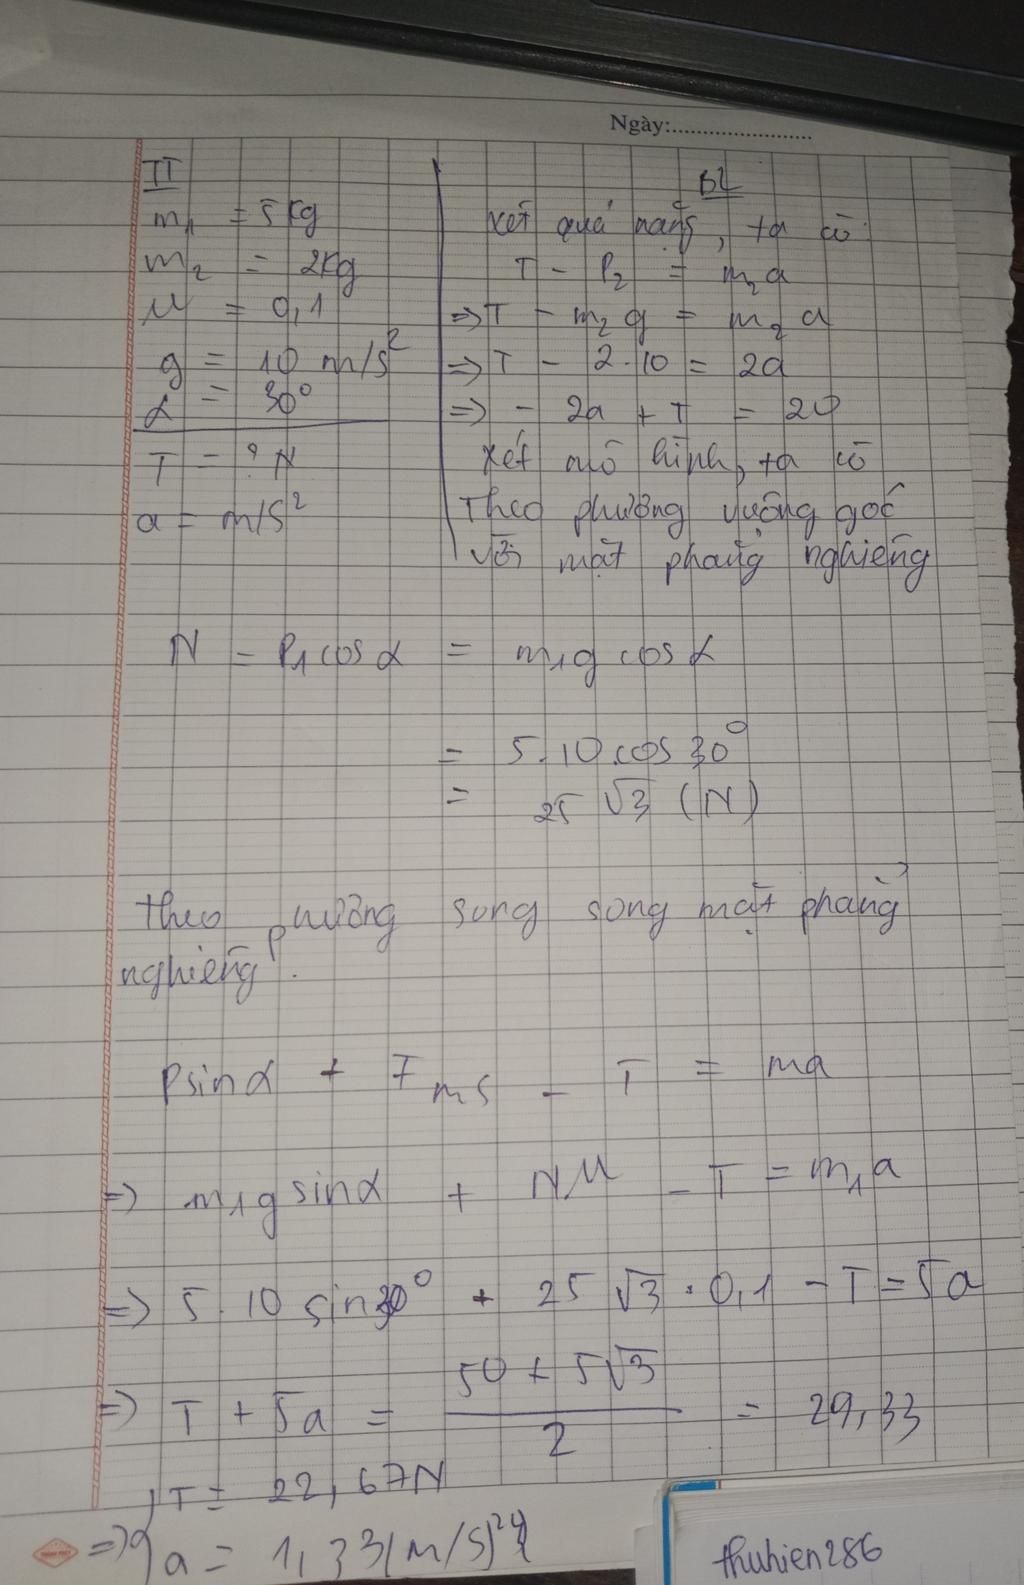 Ngày:........................
II
m₁ = 5kg
m₂ = 2kg
μ = 0,1
g = 10 m/s²
α = 30°
T = ? N
a = m/s²
BL
xét quả nặng, ta có:
T - P₂ = m₂a
=> T - m₂g = m₂a
=> T - 2.10 = 2a
=> - 2a + T = 20
xét mô hình, ta có
Theo phương vuông góc
với mặt phẳng nghiêng
N = P₁cosα = m₁g cosα
= 5.10.cos 30°
= 25 √3 (N)
theo phương song song mặt phẳng
nghiêng.
Psinα + Fms - T = ma
=> m₁g sinα + Nμ - T = m₁a
=> 5.10 sin30° + 25√3.0,1 - T = 5a
=> T + 5a = (50 + 5√3)/2 = 29,33
=> { T = 22,67N
a = 1,33(m/s)²
thuhien286